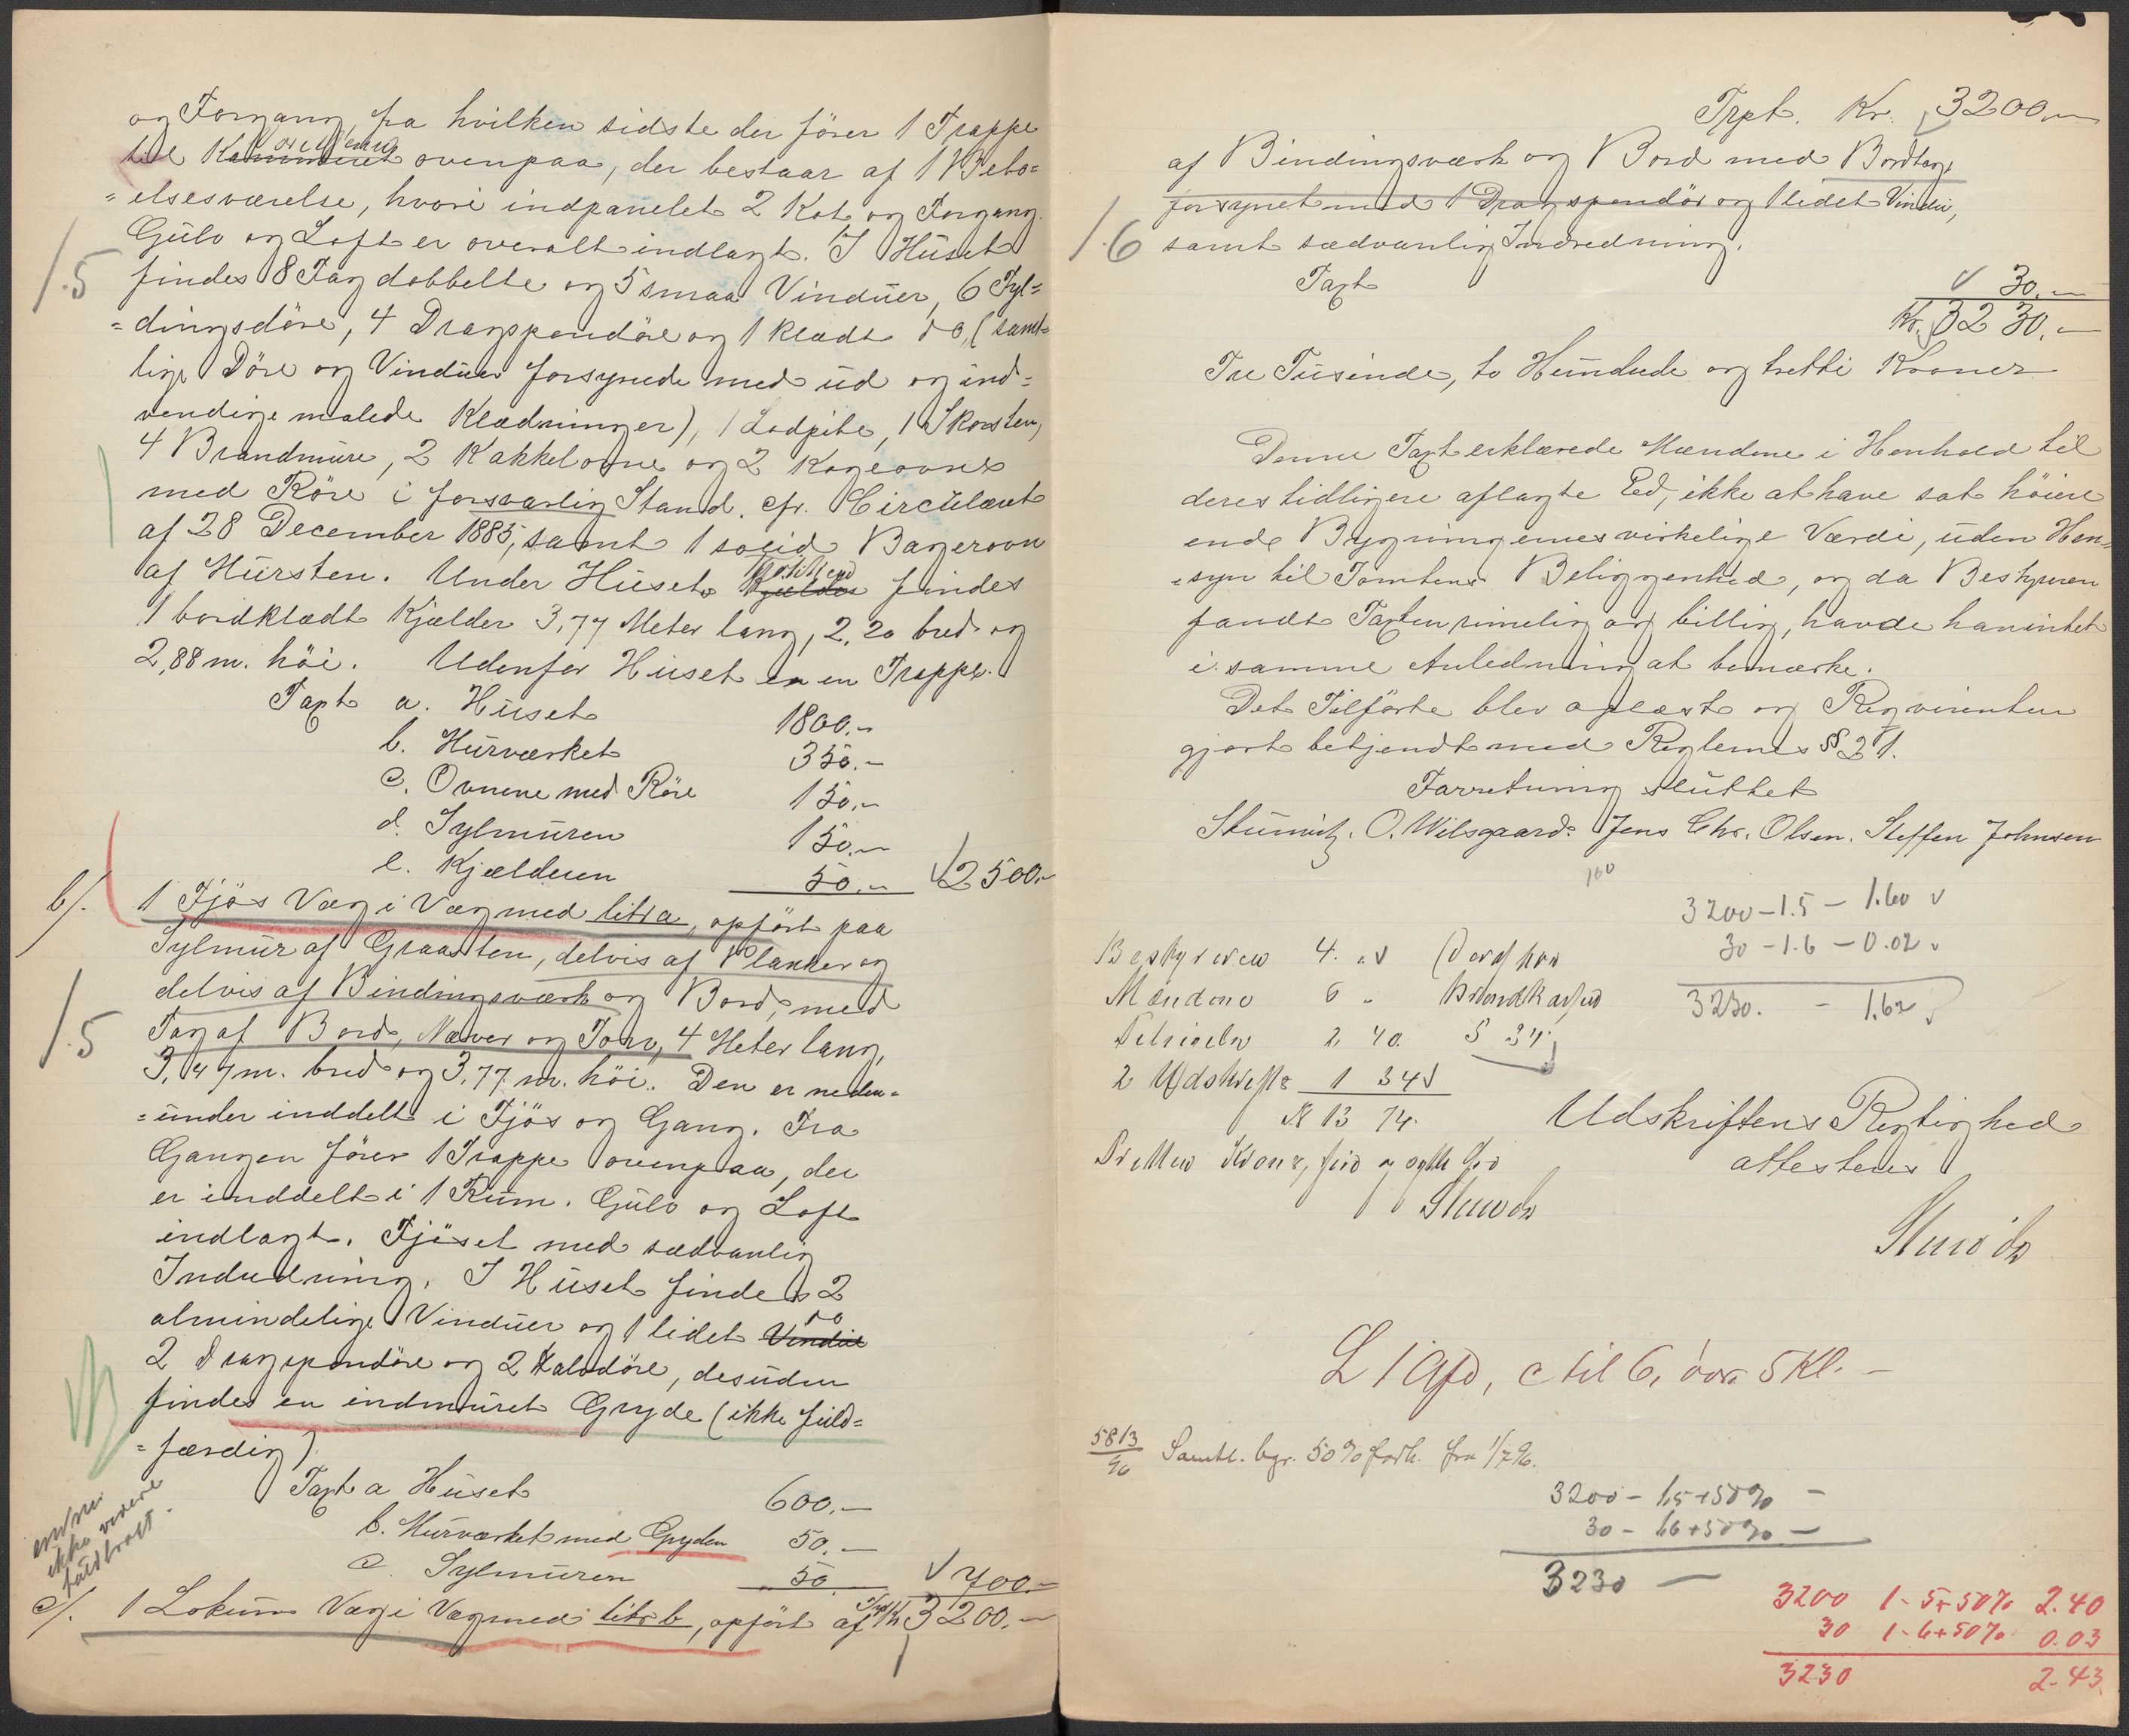 og Forgang, fra hvilken sidste der fører 1 Trappe
til Kammeret ovenpaa, der bestaar af 1 Bebo=
=elsesværelse, hvori indpanelet 2 Kot og Forgang.
Gulv og Loft er overalt indlagt. I Huset
1.5 findes 8 Fag dobbelte og 5 smaa Vinduer, 6 Fyl=
=dingsdøre, 4 Dragspondøre og 1 klædt do, (samt=
lige Døre og Vinduer forsynede med ud og ind=
vendige malede Klædninger), 1 Lodpibe, 1 Skorsten,
4 Brandmure, 2 Kakkelovne og 2 Kogeovne
med Røre i forsvarlig Stand, cfr. Circulæret
af 28 December 1885, samt 1 solid Bagerovn
af Mursten. Under Huset Kjelder findes
1 bordklædt Kjælder 3,77 Meter lang, 2,20 bred og
2,88 m. høi. Udenfor Huset er en Trappe.
Taxt a. Huset 1800.-
b. Murværket 350.-
c. Ovnene med Røre 150.-
d. Sylmuren 150.-
e. Kjælderen 50.- 2500.-
b/. 1 Fjøs Væg i Væg med litr a, opført paa
Sylmur af Graasten, delvis af Planker og
delvis af Bindingsværk og Bord, med
1.5 Tag af Bord, Næver og Torv, 4 Meter lang,
3,47 m. bred og 3,77 m. høi. Den er neden=
=under inddelt i Fjøs og Gang. Fra
Gangen fører 1 Trappe ovenpaa, der
er inddelt i 1 Rum. Gulv og Loft
indlagt. Fjøset med sædvanlig
Indredning. I Huset findes 2
almindelige Vinduer og 1 lidet Vindue do
2 Dragspondøre og 2 Halvdøre, desuden
findes en indmuret Gryde (ikke fuld=
=færdig).
Taxt a Huset 600.-
b. Murværket med Gryden 50.-
c. Sylmuren 50 700.-
ikke
c/. 1 Lokum Væg i Væg med litr b, opført af Kr 3200.-
Trpt. Kr. 3200.-
af Bindingsværk og Bord med Bordtag,
forsynet med 1 Dragspondør og 1 lidet Vindu,
1.6 samt sædvanlig Indredning.
Taxt 30.-
Kr. 3230.-
Tre Tusinde, to Hundrede og tretti Kroner
Denne Taxt erklærede Mændene i Henhold til
deres tidligere aflagte Ed, ikke at have sat høiere
end Bygningernes virkelige Værdi, uden Hen=
=syn til Tomtens Beliggenhed, og da Bestyreren
fandt Taxten rimelig og billig, havde han intet
i samme Anledning at bemærke.
Det Tilførte blev oplæst og Reqvirenten
gjort bekjendt med Reglernes § 21.
Forretning sluttet
O. Wilsgaard. Jens Chr. Olsen. Steffen Johnsen
160
3200 - 1.5 - 1.60
30 - 1.6 - 0.02
3230. - 1.62
Bestyreren 4. "
Mændene 6 "
2 40
2 Udskrifter 1 34
Kr 13 74.
Udskriftens Rigtighed
attesteres
5813/96 Samtl. bygn. 50% forh. fra 1/7 96.
3200 - 1,5 + 50% -
30 - 1,6 + 50% -
3230 -
3200 1-5+50% 2.40
30 1-6+50% 0.03
3230 2.43